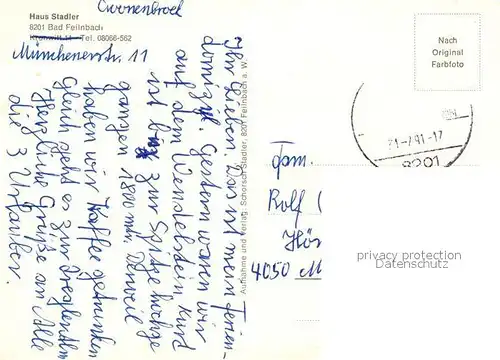 Haus Stadler
8201 Bad Feilnbach
Kronwitt 14 Tel. 08066-562
Münchenerstr. 11
Ihr Lieben. Das ist mein Ferien-
domizil. Gestern waren wir
auf dem Wendelstein, und
ist bis zur Spitze
gegangen 1800 mtr. Derweil
haben wir Kaffee getrunken
Gleich geht es zur
Herzliche Grüße an Alle
die 3 Urlauber.
Aufnahme und Verlag: Schorsch Stadler, 8201 Feilnbach a. W.
Nach
Original
Farbfoto
21-7.91-17
8201
Fam.
Rolf
Hör
4050 M
privacy protection
Datenschutz